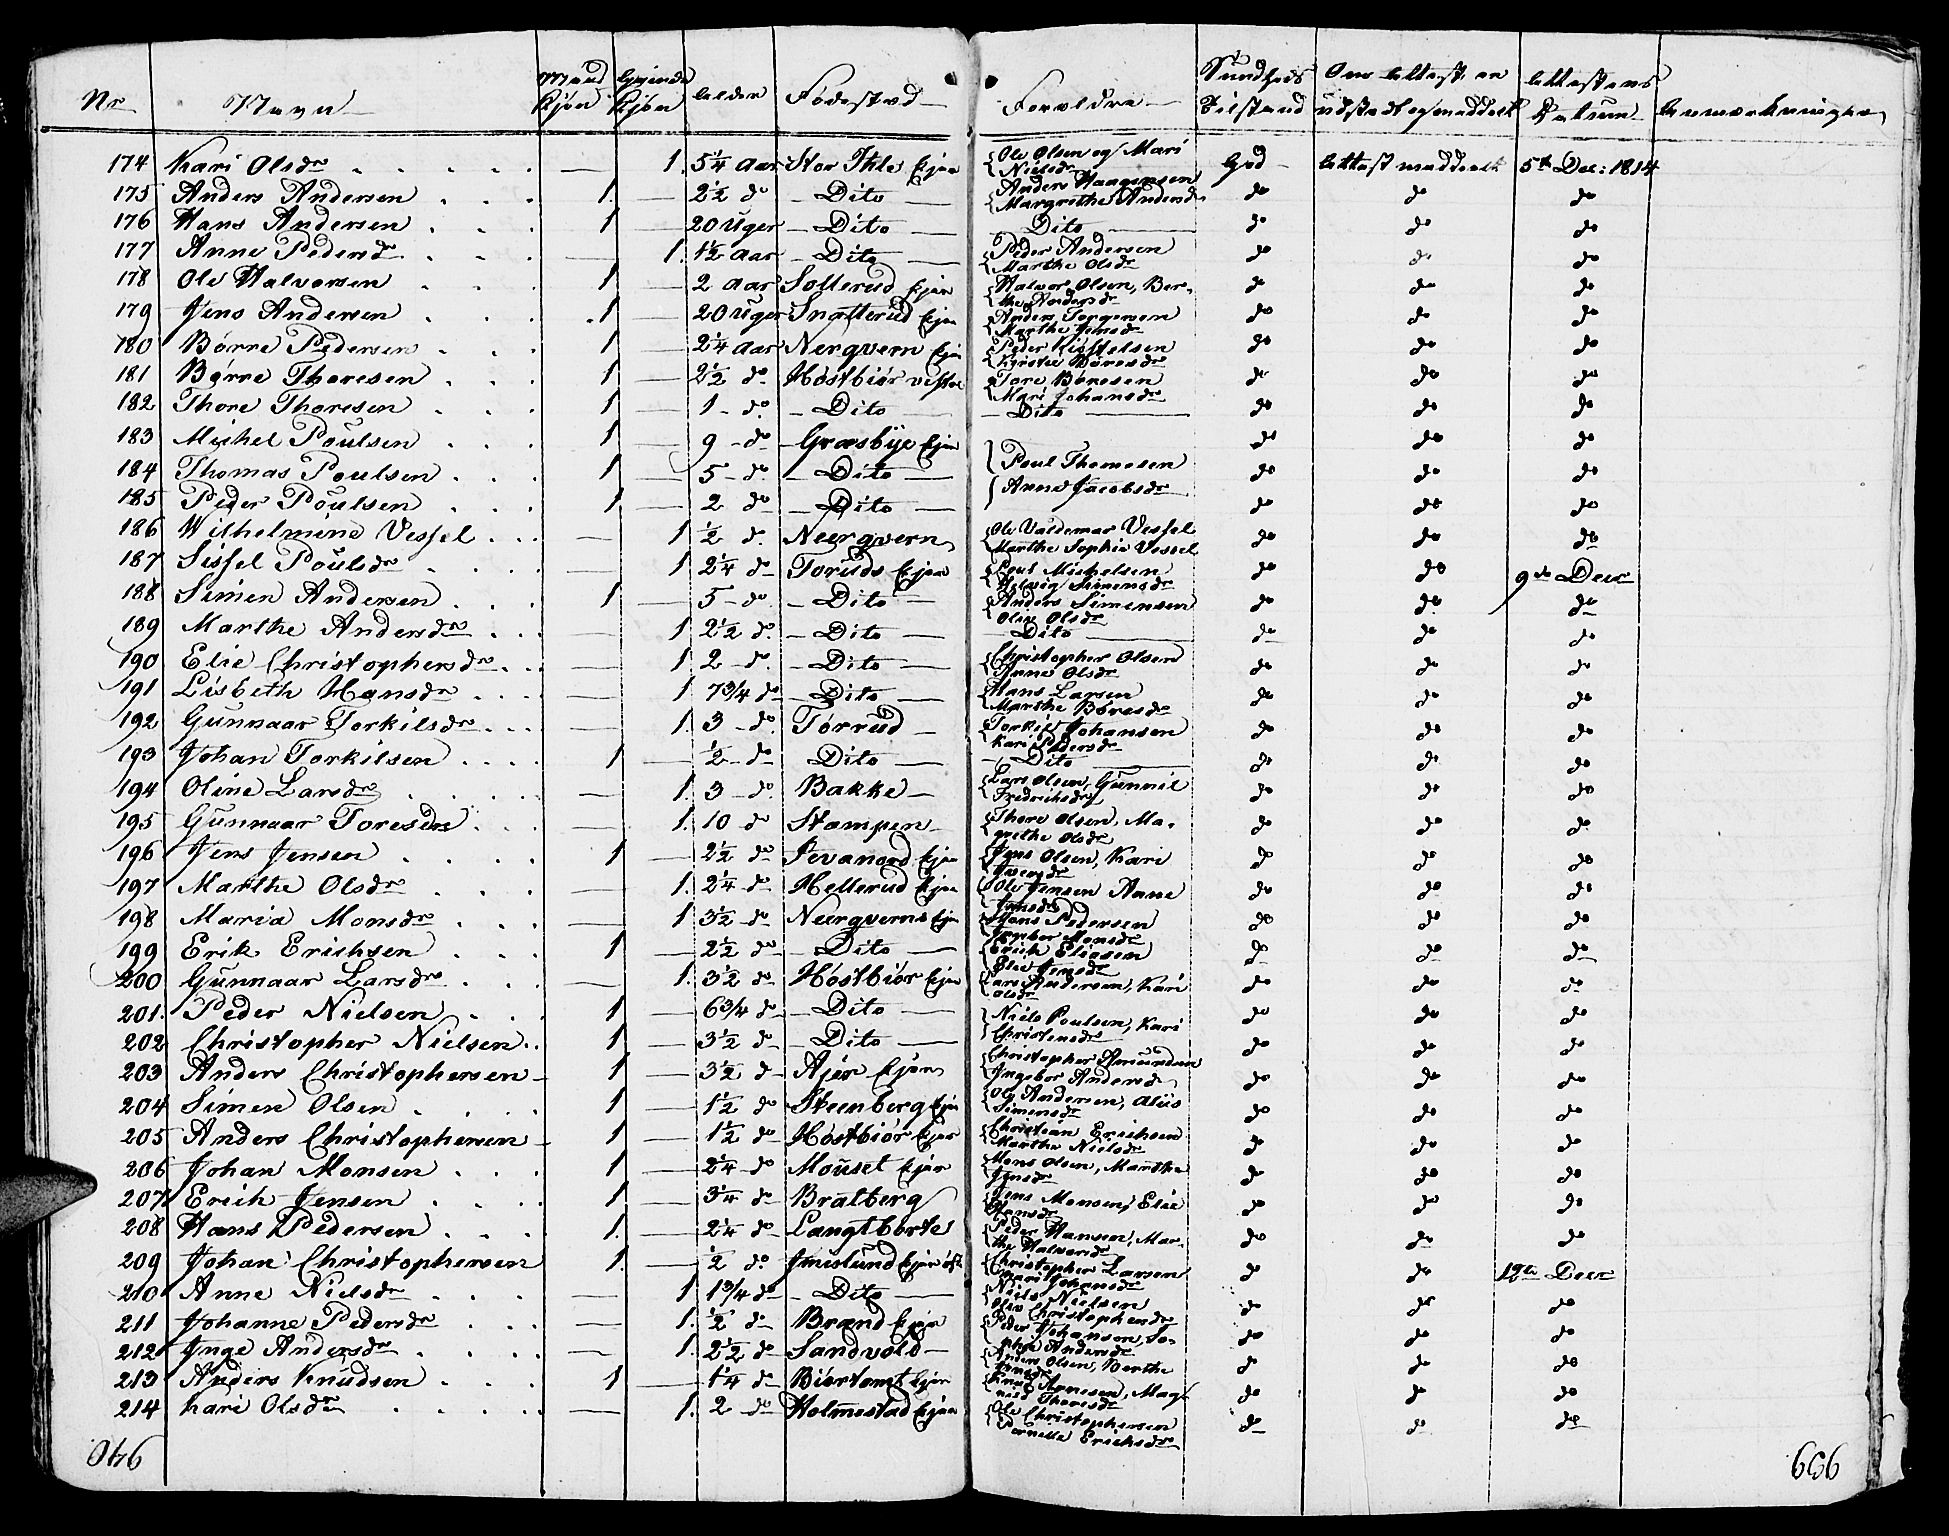 Nr Navn Mand Kjøn Qvinde Kjøn Alder Fødested Forældre Sundheds Tilstand Om Attest er udstedt og meddeelt Attestens Datum Anmærkninger
174 Kari Olsdr — 1. 5¼ Aar Stor Ihle Ejer Ole Olsen og Mari Nielsdr God Attest meddeelt 5te Dec: 1814
175 Anders Andersen 1. — 2½ do Dito Anders Haagensen Margrethe Andersd. do do do
176 Hans Andersen 1 — 20 Uger Dito Dito do do do
177 Anne Pedersdr — 1. 1½ Aar Dito Peder Andersen Marthe Olsdr do do do
178 Ole Halvorsen 1 — 2 Aar Sollerud Ejer Halvor Olsen, Berthe Andersdr do do do
179 Jens Andersen 1 — 20 Uger Snatterud Ejer Anders Torgersen Marthe Jensdr do do do
180 Børre Pedersen 1 — 2¼ Aar Nerqvern Ejer Peder Kistelsen Kirstie Børesdr do do do
181 Børre Thoresen 1 — 2½ do Høstbiør vestre Tore Børesen Mari Johansdr do do do
182 Thore Thoresen 1 — 1 do Dito Dito do do do
183 Michel Poulsen 1 — 9 do Græsbye Ejer do do do
184 Thomas Poulsen 1 — 5 do Dito Poul Thomesen do do do
185 Peder Poulsen 1 — 2 do Dito Anne Jacobsdr do do do
186 Wilhelmine Vessel — 1 ½ do Neerqvern Ole Valdemar Vessel Marthe Sophie Vessel do do do
187 Sissel Poulsdr — 1 2¼ do Toruds Ejer Poul Michelsen Helvig Simensdr do do 9de Decr
188 Simen Andersen 1 — 5 do Dito Anders Simensen Olia Olsdr do do do
189 Marthe Andersdr — 1 2½ do Dito Dito do do do
190 Elie Christophersdr — 1. 2 do Dito Christopher Olsen Anne Olsdr do do do
191 Lisbeth Hansdr — 1 7¾ do Dito Hans Larsen Marthe Børesdr do do do
192 Gunnaar Torkilsdr — 1. 3 do Torrud Torkild Johansen Kari Pedersdr do do do
193 Johan Torkilsen 1 ½ do Dito Dito do do do
194 Oline Larsdr — 1. 3 do Bakke Lars Olsen, Gunnil Fredrichsdr do do do
195 Gunnaar Toresdr — 1. 10 do Stampen Thore Olsen, Magrethe Olsdr do do do
196 Jens Jensen 1 — 2½ do Jevanord Ejer Jens Olsen, Kari Iversdr do do do
197 Marthe Olsdr — 1. 2¼ do Hellerud Ejer Ole Jensen Anne Jensdr do do do
198 Maria Monsdr — 1 3½ do Neerqverns Ejer Hans Pedersen Ingebor Monsdr do do do
199 Erik Erichsen 1 — 2½ do Dito Erich Eliesen Elie Jensdr do do do
200 Gunnaar Larsdr — 1. 3½ do Høstbiør Ejer Lars Andersen, Kari Olsdr do do do
201. Peder Nielsen 1 — 6¾ do Dito Niels Poulsen, Kari do do do
202 Christopher Nielsen 1 — 3½ do Dito Christensdr do do do
203 Anders Christophersen 1 — 3½ do Ajer Ejer Christopher Amundsen Ingebor Andersd. do do do
204 Simen Olsen 1 — 1½ do Steenberg Ejer Ole Andersen, Aliis Simensdr do do do
205 Anders Christophersen 1 — 1½ do Høstbiør Ejer Christian Erichsen Marthe Nielsdr do do do
206 Johan Monsen 1 — 2¼ do Mouset Ejer Mons Olsen, Marthe Jensdr do do do
207 Erich Jensen 1 — 3¼ do Bratberg Jens Monsen, Elie Hansdr do do do
208 Hans Pedersen 1. — 2¼ do Langtborte Peder Hansen, Marthe Halvorsdr do do do
209 Johan Christophersen 1. — ½ do Imislund Ejer Christopher Larsen Mari Johansdr do do 12te Decr
210 Anne Nielsdr — 1 1¾ do Dito Niels Nielsen Olia Christophersdr do do do
211 Johanne Pedersdr — 1. ½ do Brand Ejer Peder Johansen, Sophie Andersdr do do do
212 Inge Andersdr — 1. 2½ do Sandvold Anders Olsen, Berthe Jensdr do do do
213 Anders Knudsen 1 — 1¼ do Biørtomt Ejer Knud Arnesen, Magnild Thoresdr do do do
214 Kari Olsdr — 1. 2 do Holmestad Ejer Ole Christophersen Pernelle Erichsdr do do do